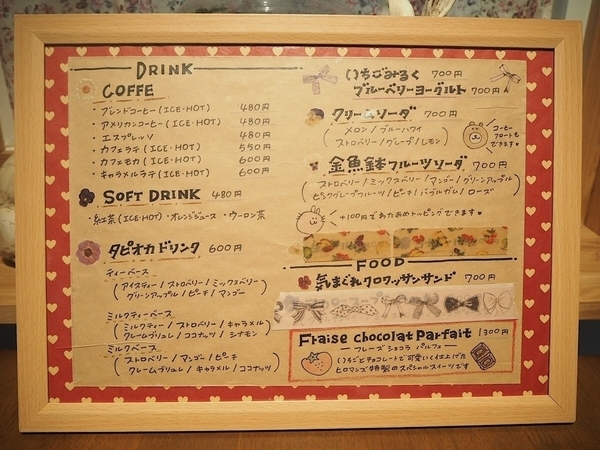 DRINK
COFFE
・ブレンドコーヒー(ICE・HOT) 480円
・アメリカンコーヒー(ICE・HOT) 480円
・エスプレッソ 480円
・カフェラテ(ICE・HOT) 550円
・カフェモカ(ICE・HOT) 600円
・キャラメルラテ(ICE・HOT) 600円
SOFT DRINK 480円
・紅茶(ICE・HOT)・オレンジジュース・ウーロン茶
タピオカドリンク 600円
ティーベース
(アイスティー/ストロベリー/ミックスベリー
グリーンアップル/ピーチ/マンゴー)
ミルクティーベース
(ミルクティー/ストロベリー/キャラメル
クレームブリュレ/ココナッツ/シナモン)
ミルクベース
(ストロベリー/マンゴー/ピーチ
クレームブリュレ/キャラメル/ココナッツ)
いちごみるく 700円
ブルーベリーヨーグルト 700円
クリームソーダ 700円
(メロン/ブルーハワイ
ストロベリー/グレープ/レモン)
コーヒー
フロートも
できます♥
金魚鉢フルーツソーダ 700円
(ストロベリー/ミックスベリー/マンゴー/グリーンアップル
ピンクグレープフルーツ/ピーチ/バブルガム/ローズ)
+100円であたあめトッピングできます♥
FOOD
気まぐれクロワッサンサンド 700円
Fraise chocolat Parfait 1300円
ーフレーズ ショコラ パルフェー
(いちごとチョコレートで可愛いく仕上げた
ヒロマンズ特製のスペシャルスイーツです)